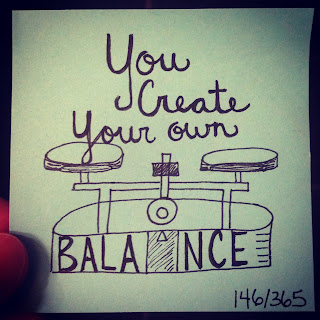 You
Create
Your own
BALANCE
146/365